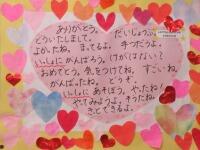 ありがとう。 だいじょうぶ。
どういたしまして。
よかったね。 まってるよ。 手つだうよ。
いっしょにがんばろう。 けがはない?
おめでとう。 気をつけてね。 すごいね。
がんばったね。 どうぞ。
いっしょにあそぼう。 やったね!
やってみようよ。 そうだね。
きっとできるよ。